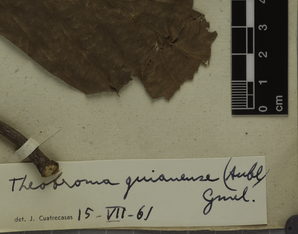 0
1
2
3
4
cm
Theobroma guianense (Aubl)
Gmel.
det. J. Cuatrecasas 15-VII-61